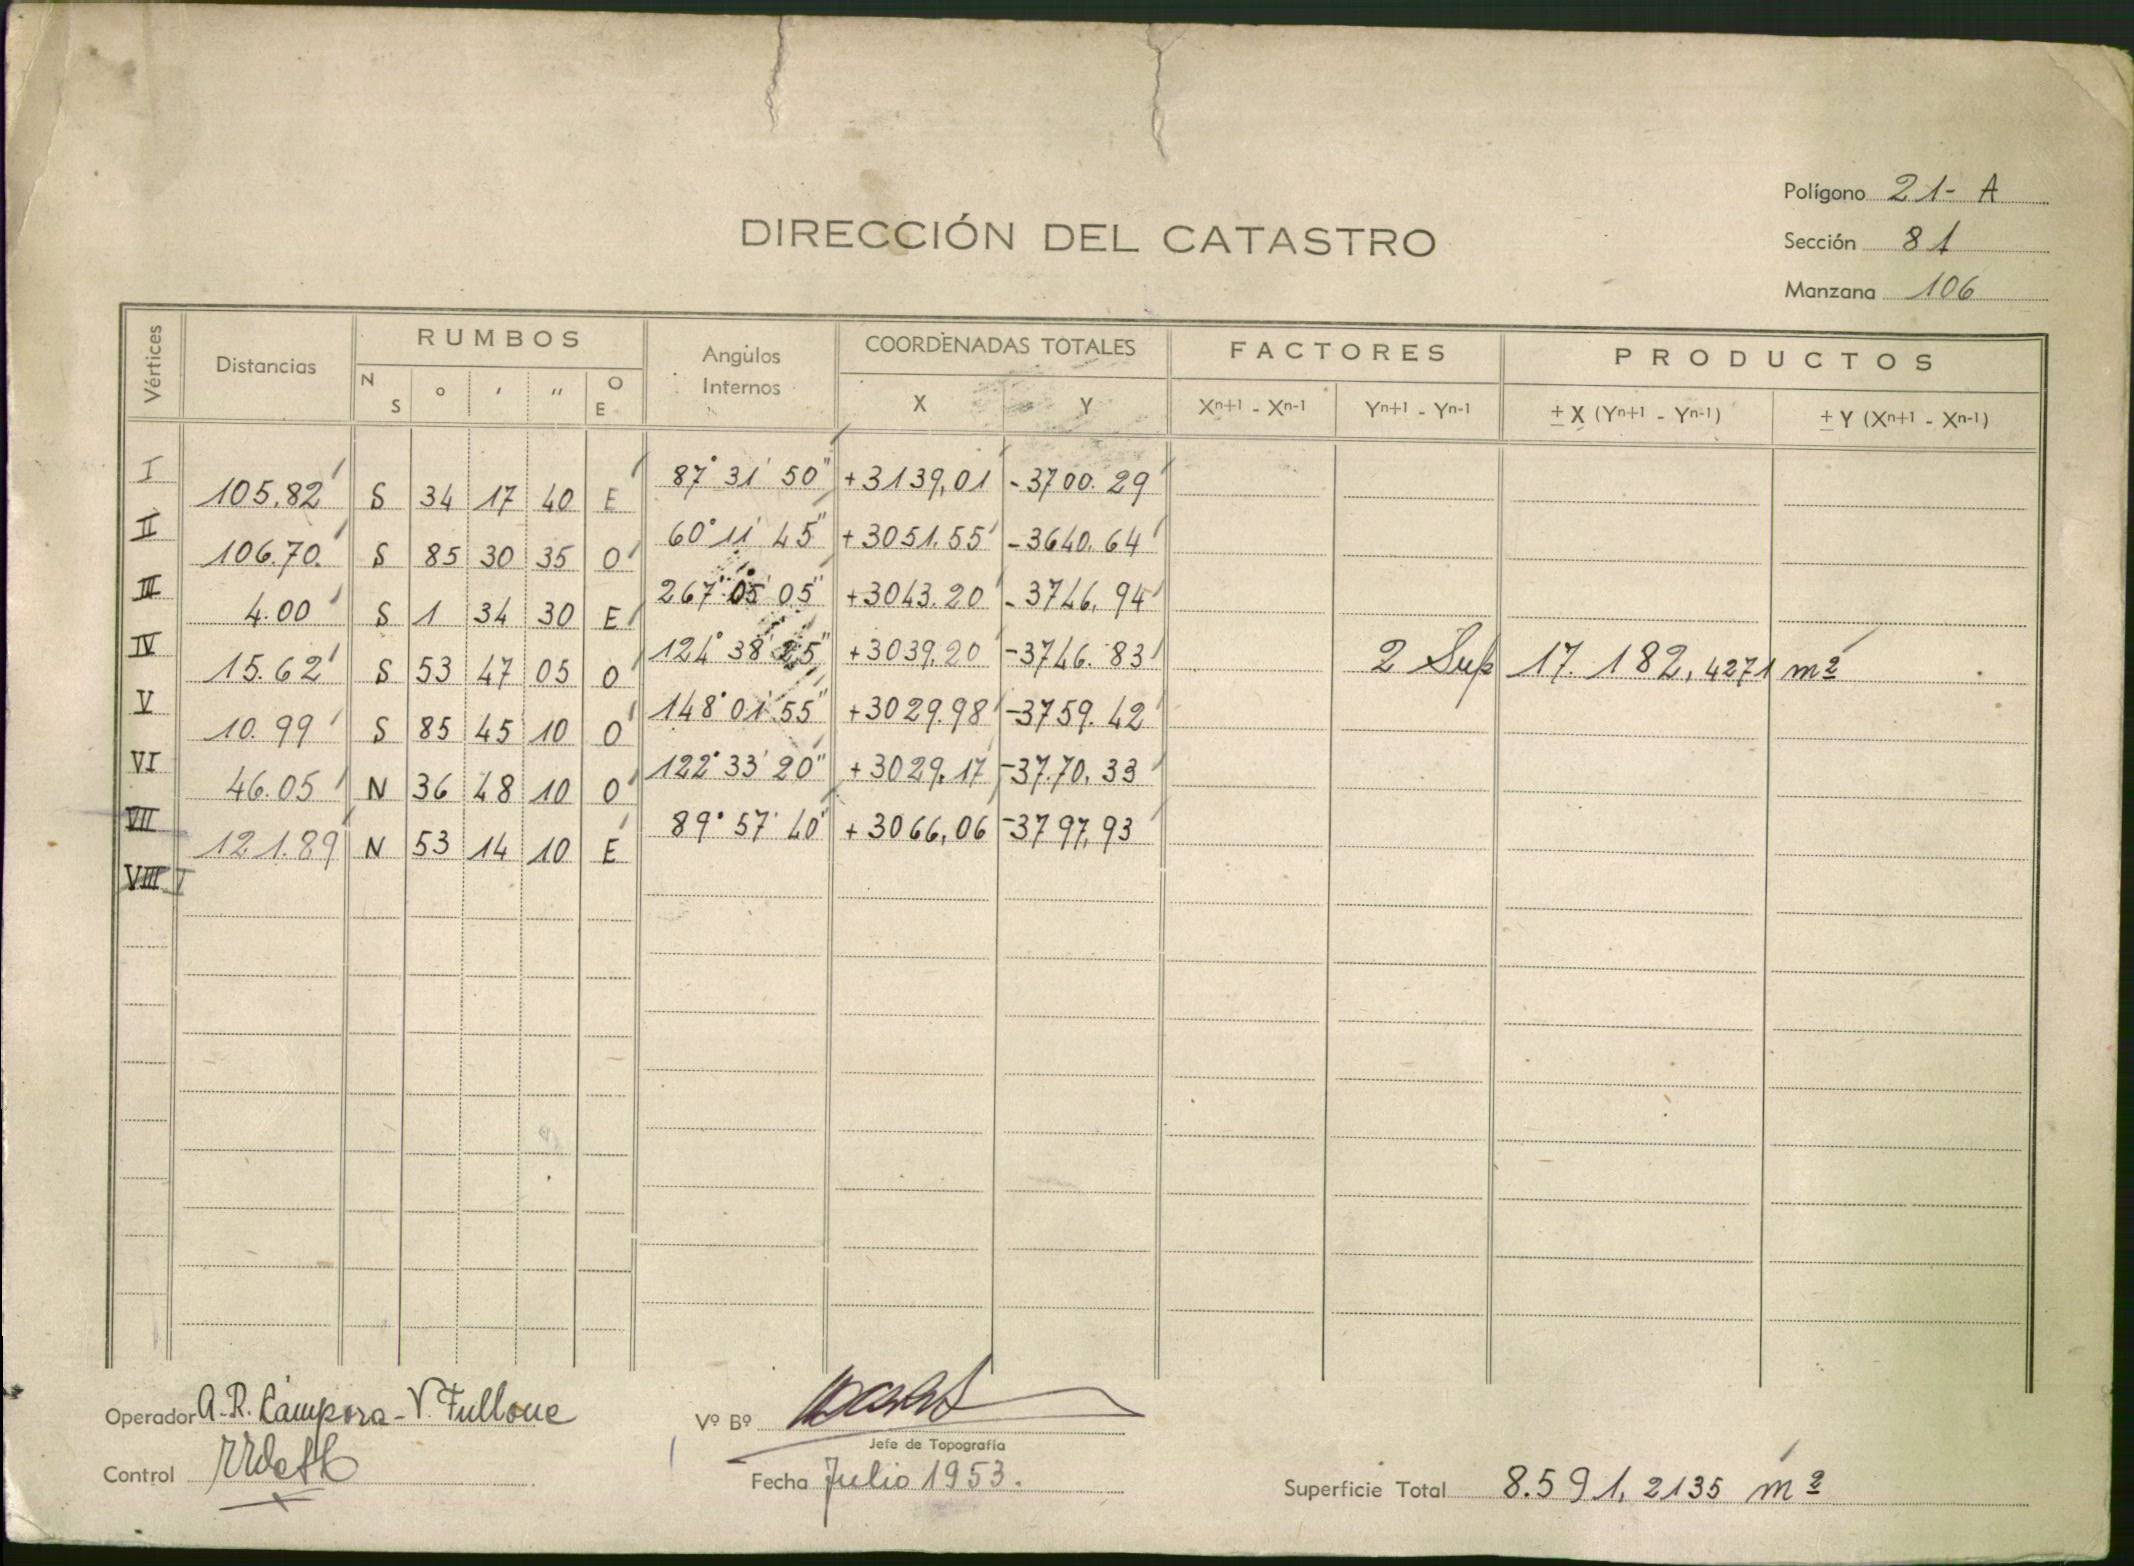 Polígono 21- A
DIRECCIÓN DEL CATASTRO
Sección 81
Manzana 106
Vértices
Distancias
RUMBOS
N S ° ' " O E
Angulos Internos
COORDENADAS TOTALES
X Y
FACTORES
Xn+1 - Xn-1 Yn+1 - Yn-1
PRODUCTOS
± X (Yn+1 - Yn-1) ± Y (Xn+1 - Xn-1)
I 87° 31' 50" +3139,01 -3700.29
105.82 S 34 17 40 E
II 60° 11' 45" +3051.55 -3640.64
106.70. S 85 30 35 O
III 267° 05' 05" +3043.20 -3746.94
4.00 S 1 34 30 E
IV 124° 38' 25" +3039.20 -3746.83
2 Sup 17.182,4271 m²
15.62 S 53 47 05 O
V 148° 01' 55" +3029.98 -3759.42
10.99 S 85 45 10 O
VI 122° 33' 20" +3029.17 -3770.33
46.05 N 36 48 10 O
VII 89° 57' 40" +3066,06 -3797,93
121.89 N 53 14 10 E
VIII I
Operador A.R. Cámpora - V. Fullone
Vº Bº
Jefe de Topografía
Control
Fecha Julio 1953.
Superficie Total 8.591,2135 m²